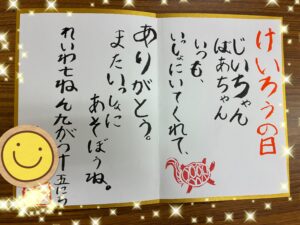 けいろうの日
じいちゃん
ばあちゃん
いつも、
いっしょにいてくれて、
ありがとう。
またいっしょに
あそぼうね。
れいわ七ねん九がつ十五にち